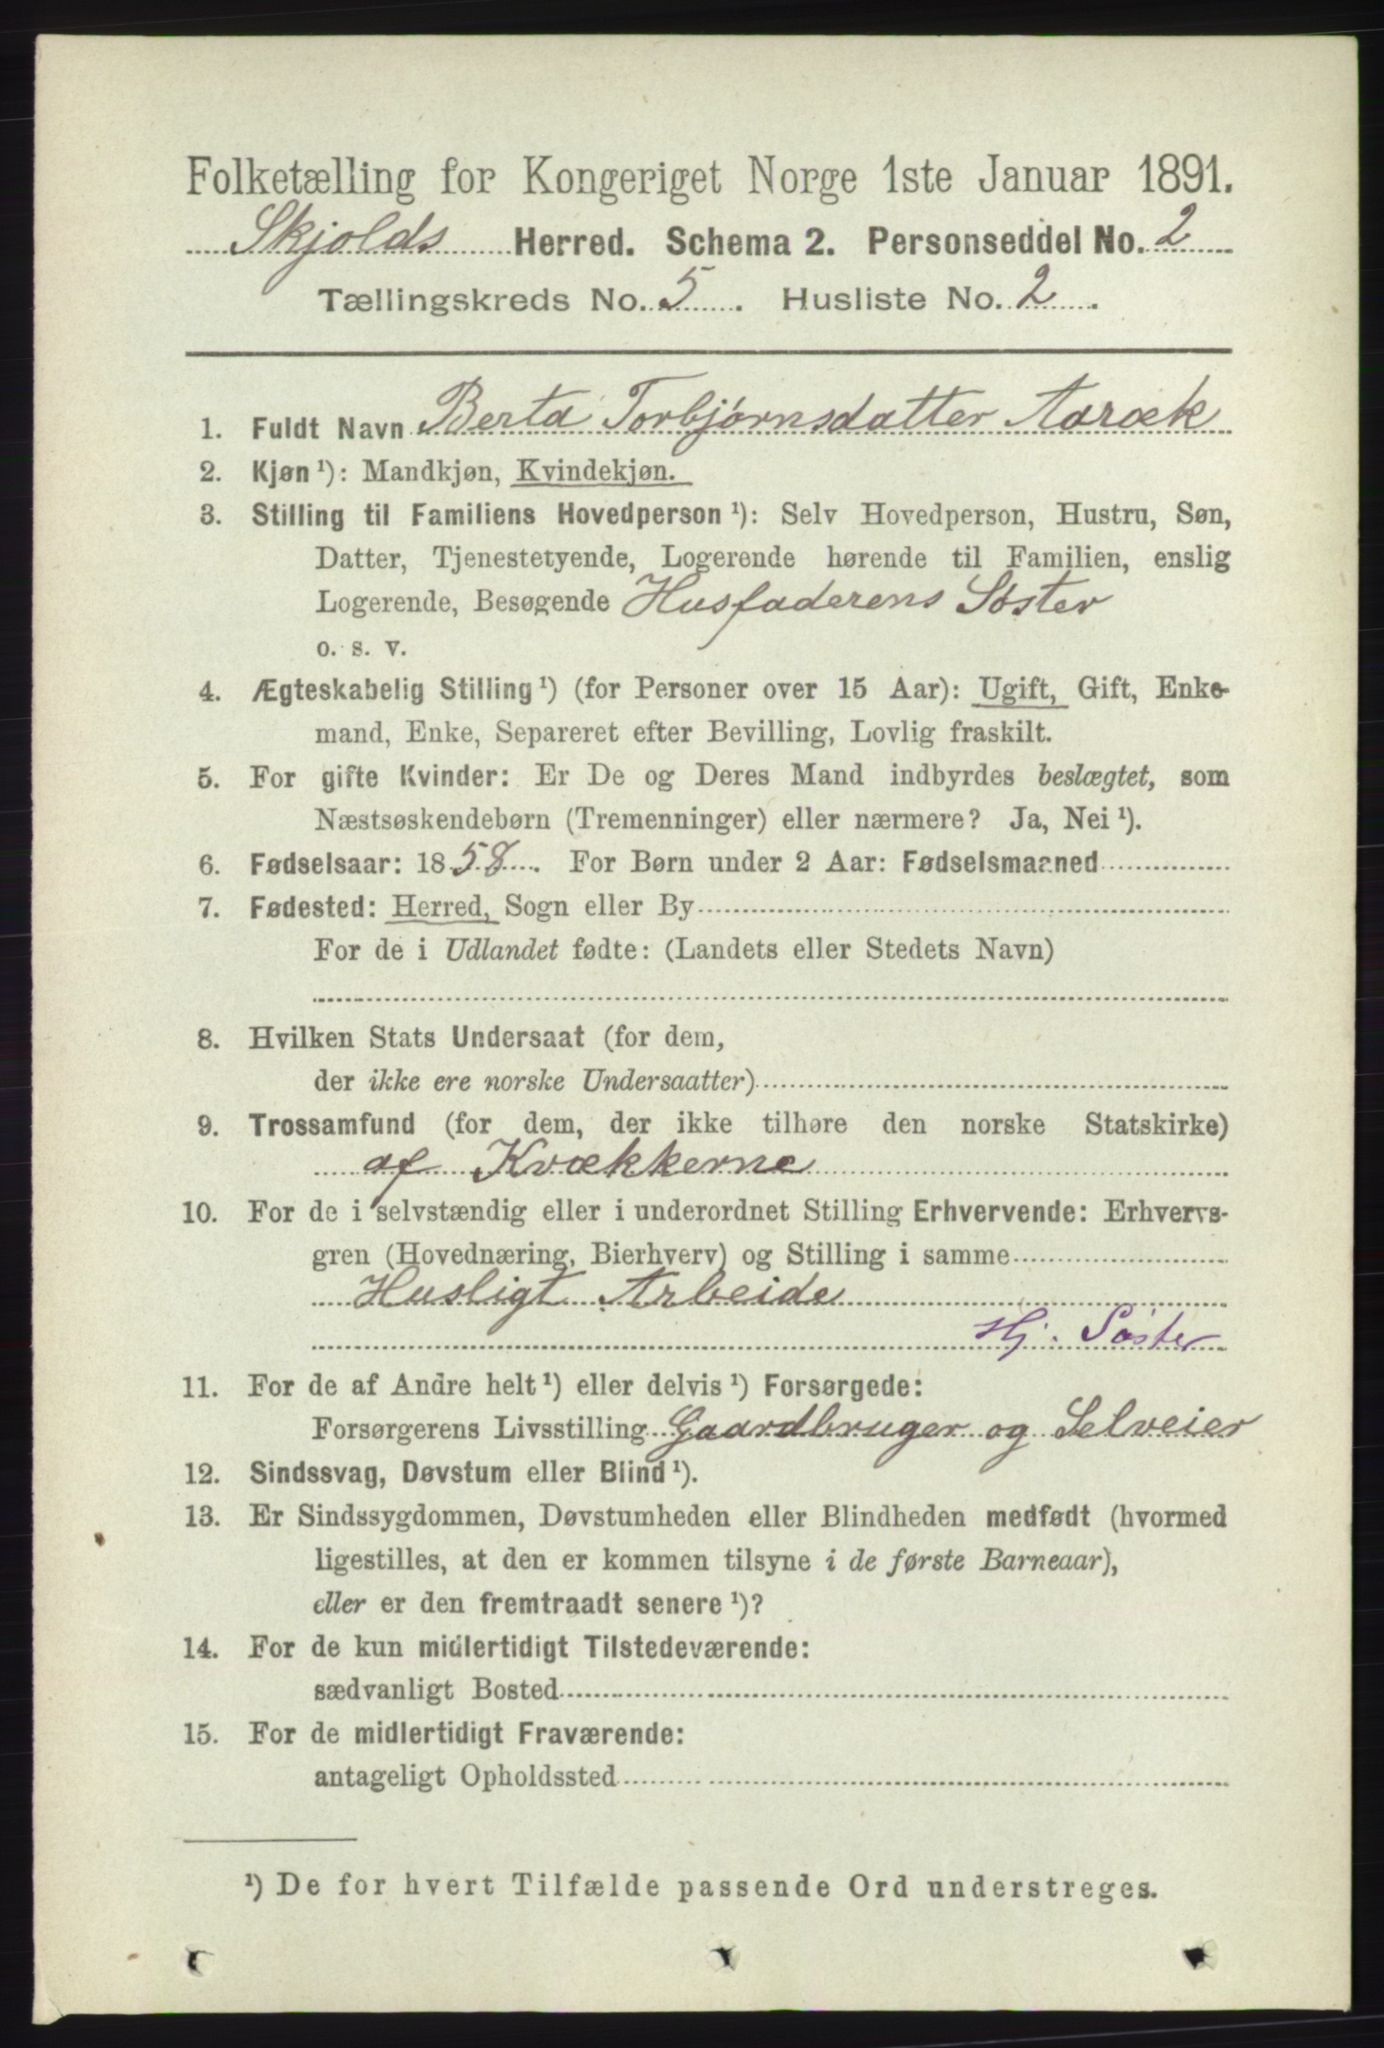 Folketælling for Kongeriget Norge 1ste Januar 1891.
Skjolds Herred. Schema 2. Personseddel No. 2
Tællingskreds No. 5. Husliste No. 2.
1. Fuldt Navn Berta Torbjørnsdatter Aaræk
2. Kjøn ¹): Mandkjøn, Kvindekjøn.
3. Stilling til Familiens Hovedperson ¹): Selv Hovedperson, Hustru, Søn,
Datter, Tjenestetyende, Logerende hørende til Familien, enslig
Logerende, Besøgende Husfaderens Søster
o. s. v.
4. Ægteskabelig Stilling ¹) (for Personer over 15 Aar): Ugift, Gift, Enke-
mand, Enke, Separeret efter Bevilling, Lovlig fraskilt.
5. For gifte Kvinder: Er De og Deres Mand indbyrdes beslægtet, som
Næstsøskendebørn (Tremenninger) eller nærmere? Ja, Nei ¹).
6. Fødselsaar: 1858. For Børn under 2 Aar: Fødselsmaaned
7. Fødested: Herred, Sogn eller By
For de i Udlandet fødte: (Landets eller Stedets Navn)
8. Hvilken Stats Undersaat (for dem,
der ikke ere norske Undersaatter)
9. Trossamfund (for dem, der ikke tilhøre den norske Statskirke)
af Kvækkerne
10. For de i selvstændig eller i underordnet Stilling Erhvervende: Erhvervs-
gren (Hovednæring, Bierhverv) og Stilling i samme
Husligt Arbeide
Hj. Søster
11. For de af Andre helt ¹) eller delvis ¹) Forsørgede:
Forsørgerens Livsstilling Gaardbruger og Selveier
12. Sindssvag, Døvstum eller Blind ¹).
13. Er Sindssygdommen, Døvstumheden eller Blindheden medfødt (hvormed
ligestilles, at den er kommen tilsyne i de første Barneaar),
eller er den fremtraadt senere ¹)?
14. For de kun midlertidigt Tilstedeværende:
sædvanligt Bosted
15. For de midlertidigt Fraværende:
antageligt Opholdssted
¹) De for hvert Tilfælde passende Ord understreges.